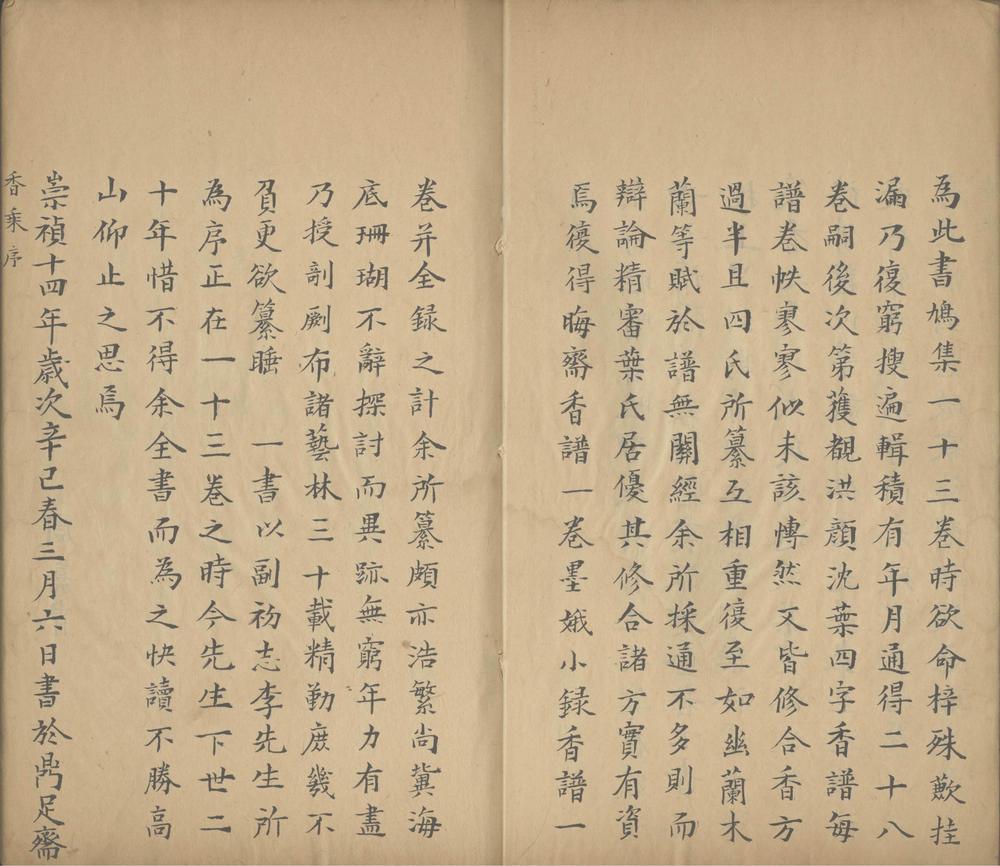 為此書鳩集一十三卷時欲命梓殊歉挂
漏乃復窮搜遍輯積有年月通得二十八
卷嗣後次第獲覩洪顏沈葉四字香譜每
譜卷帙寥寥似未該愽然又皆修合香方
過半且四氏所纂互相重復至如幽蘭木
蘭等賦於譜無關經余所採通不多則而
辯論精審葉氏居優其修合諸方實有資
焉復得晦齋香譜一卷墨娥小録香譜一
卷并全録之計余所纂頗亦浩繁尚冀海
底珊瑚不辭探討而異跡無窮年力有盡
乃授剞劂布諸藝林三十載精勤庶幾不
負更欲纂睡　一書以副初志李先生所
為序正在一十三卷之時今先生下世二
十年惜不得余全書而為之快讀不勝高
山仰止之思焉
崇禎十四年歲次辛巳春三月六日書於鼎足齋
香乘序